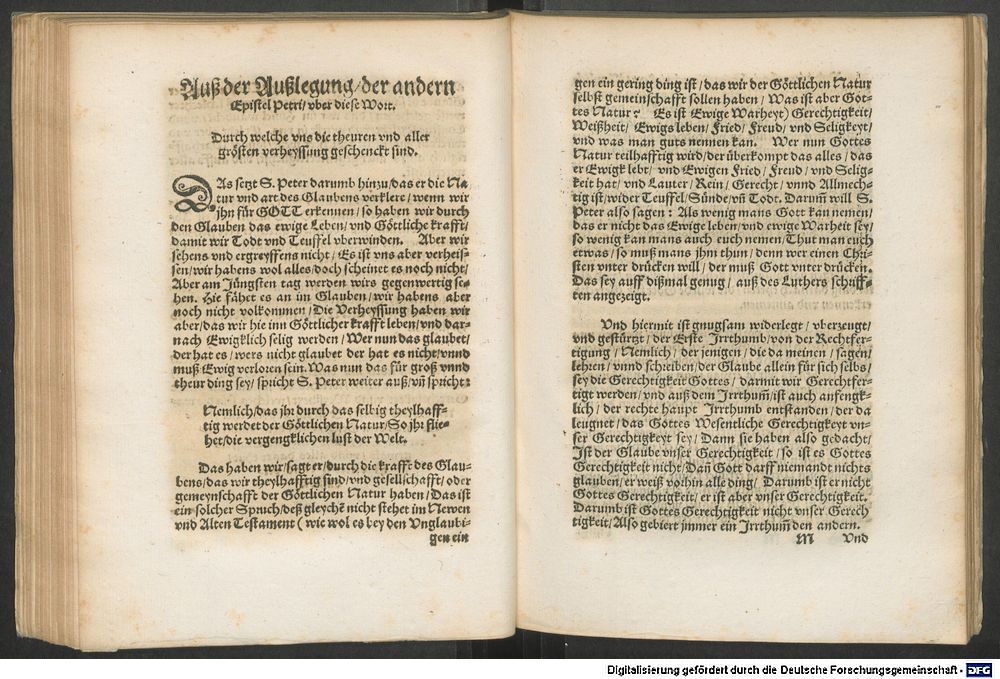 Auß der Außlegung/der andern
Epistel Petri/vber diese Wort.
Durch welche vns die theuren vnd aller
grösten verheyssung geschenckt sind.
DAs setzt S. Peter darumb hinzu/das er die Na-
tur vnd art des Glaubens verklere/wenn wir
jhn für GOTT erkennen/so haben wir durch
den Glauben das ewige Leben/vnd Göttliche krafft/
damit wir Todt vnd Teuffel vberwinden. Aber wir
sehens vnd ergreyffens nicht/Es ist vns aber verheis-
sen/wir habens wol alles/doch scheinet es noch nicht/
Aber am Jüngsten tag werden wirs gegenwertig se-
hen. Hie fähet es an im Glauben/wir habens aber
noch nicht volkommen/Die Verheyssung haben wir
aber/das wir hie inn Göttlicher krafft leben/vnd dar-
nach Ewigklich selig werden/Wer nun das glaubet/
der hat es/wers nicht glaubet der hat es nicht/vnnd
muß Ewig verloren sein. Was nun das für groß vnnd
theur ding sey/spricht S. Peter weiter auß/vñ spricht:
Nemlich/das jhr durch das selbig theylhaff-
tig werdet der Göttlichen Natur/So jhr flie-
het/die vergengklichen lust der Welt.
Das haben wir/sagt er/durch die krafft des Glau-
bens/das wir theylhafftig sind/vnd gesellschafft/oder
gemeynschafft der Göttlichen Natur haben/Das ist
ein solcher Spruch/deß gleychẽ nicht stehet im Newen
vnd Alten Testament (wie wol es bey den Vnglaubi-
gen ein
gen ein gering ding ist/das wir der Göttlichen Natur
selbst gemeinschafft sollen haben/Was ist aber Göt-
tes Natur? Es ist Ewige Warheyt) Gerechtigkeit/
Weißheit/Ewigs leben/Fried/Freud/vnd Seligkeyt/
vnd was man guts nennen kan. Wer nun Gottes
Natur teilhafftig wird/der überkompt das alles/das
er Ewigk lebt/vnd Ewigen Fried/Freud/vnd Selig-
keit hat/vnd Lauter/Rein/Gerecht/vnnd Allmech-
tig ist/wider Teuffel/Sünde/vñ Todt. Darumb will S.
Peter also sagen: Als wenig mans Gott kan nemen/
das er nicht das Ewige leben/vnd ewige Warheit sey/
so wenig kan mans auch euch nemen/Thut man euch
etwas/so muß mans jhm thun/denn wer einen Chri-
sten vnter drücken will/der muß Gott vnter drücken.
Das sey auff dißmal genug/auß des Luthers schriff-
ten angezeigt.
Vnd hiermit ist gnugsam widerlegt/vberzeugt/
vnd gestürtzt/der Erste Irrthumb/von der Rechtfer-
tigung/Nemlich/der jenigen/die da meinen/sagen/
lehren/vnnd schreiben/der Glaube allein für sich selbs/
sey die Gerechtigkeit Gottes/darmit wir Gerechtfer-
tigt werden/vnd auß dem Irrthum̃/ist auch anfengk-
lich/der rechte haupt Irrthumb entstanden/der da
leugnet/das Gottes Wesentliche Gerechtigkeyt vn-
ser Gerechtigkeyt sey/Dann sie haben also gedacht/
Ist der Glaube vnser Gerechtigkeit/so ist es Gottes
Gerechtigkeit nicht/Dañ Gott darff niemandt nichts
glauben/er weiß vorhin alle ding/Darumb ist er nicht
Gottes Gerechtigkeit/er ist aber vnser Gerechtigkeit.
Darumb ist Gottes Gerechtigkeit nicht vnser Gerech
tigkeit/Also gebiert jmmer ein Irrthum̃ den andern.
M Vnd
Digitalisierung gefördert durch die Deutsche Forschungsgemeinschaft - DFG